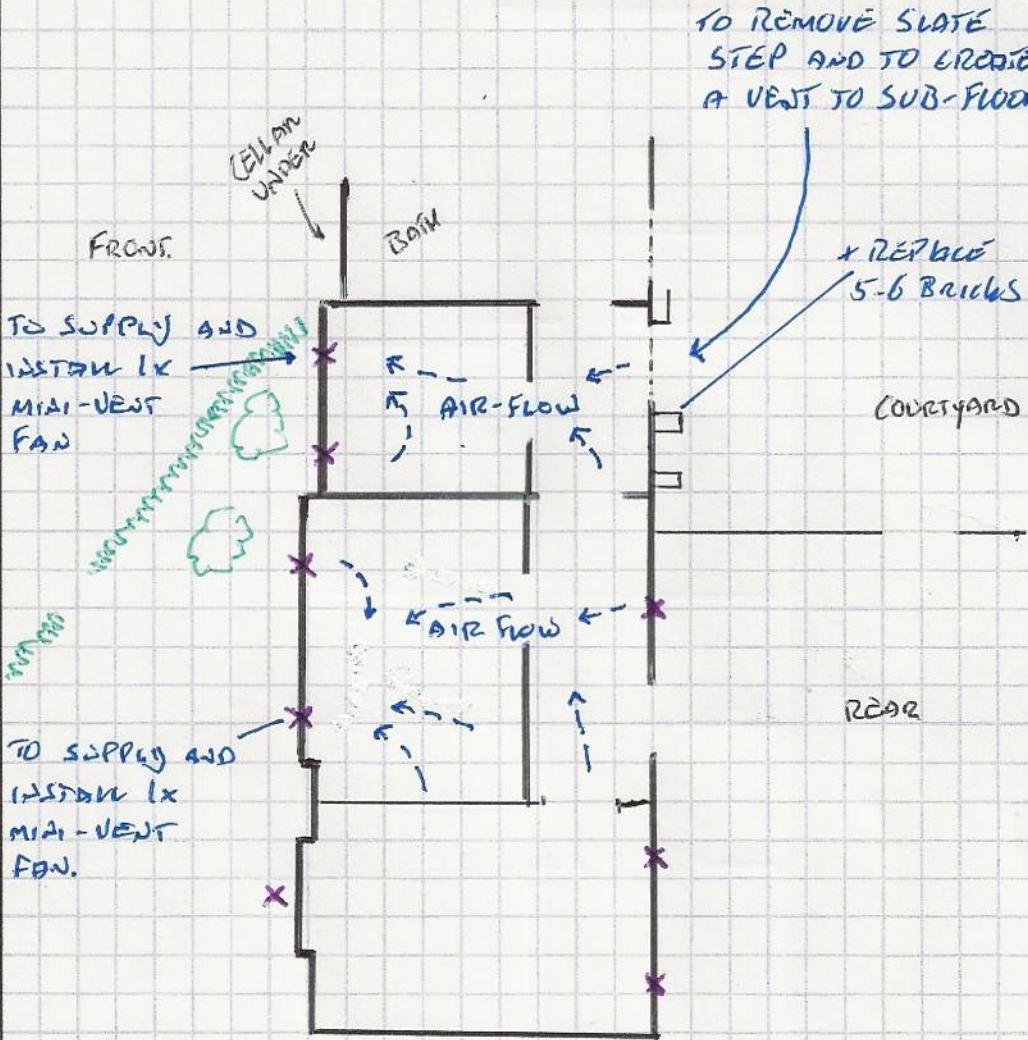 TO REMOVE SLATE
STEP AND TO CREATE
A VENT TO SUB-FLOOR
CELLAR
UNDER
FRONT.
BATH
+ REPLACE
5-6 BRICKS
TO SUPPLY AND
INSTALL 1X
MINI-VENT
FAN
AIR-FLOW
COURTYARD
AIR FLOW
REAR
TO SUPPLY AND
INSTALL 1X
MINI-VENT
FAN.